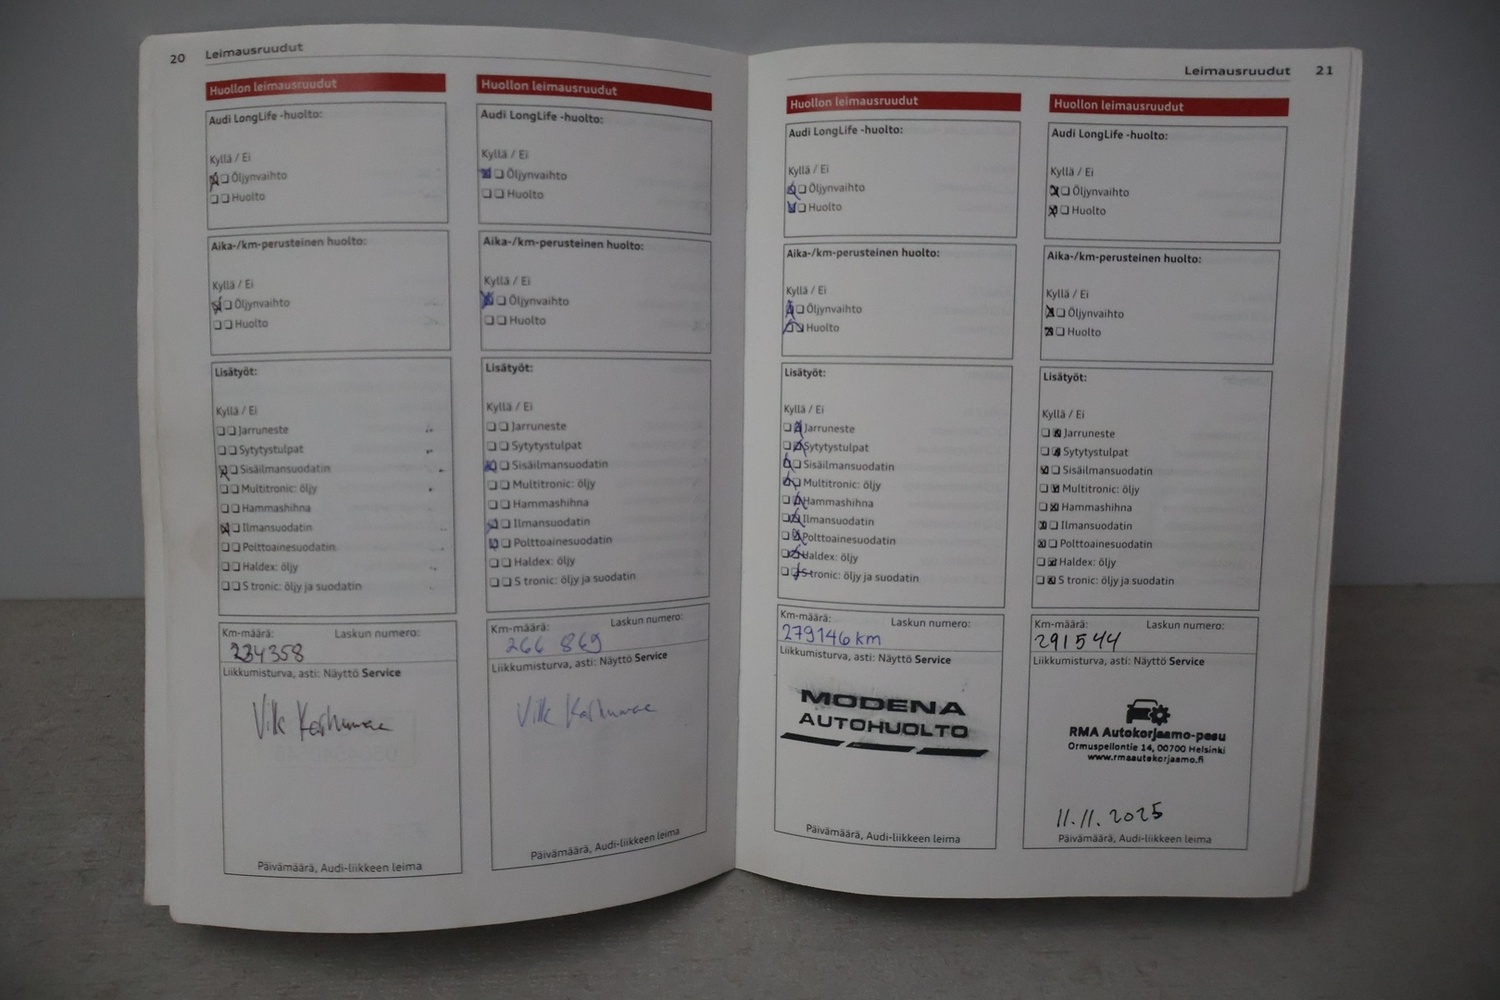 20 Leimausruudut
Huollon leimausruudut
Audi LongLife -huolto:
Kyllä / Ei
Öljynvaihto
Huolto
Aika-/km-perusteinen huolto:
Kyllä / Ei
Öljynvaihto
Huolto
Lisätyöt:
Kyllä / Ei
Jarruneste
Sytytystulpat
Sisäilmansuodatin
Multitronic: öljy
Hammashihna
Ilmansuodatin
Polttoainesuodatin
Haldex: öljy
S tronic: öljy ja suodatin
Km-määrä: Laskun numero:
234358
Liikkumisturva, asti: Näyttö Service
Ville
Päivämäärä, Audi-liikkeen leima
Huollon leimausruudut
Audi LongLife -huolto:
Kyllä / Ei
Öljynvaihto
Huolto
Aika-/km-perusteinen huolto:
Kyllä / Ei
Öljynvaihto
Huolto
Lisätyöt:
Kyllä / Ei
Jarruneste
Sytytystulpat
Sisäilmansuodatin
Multitronic: öljy
Hammashihna
Ilmansuodatin
Polttoainesuodatin
Haldex: öljy
S tronic: öljy ja suodatin
Km-määrä: Laskun numero:
266 869
Liikkumisturva, asti: Näyttö Service
Ville
Päivämäärä, Audi-liikkeen leima
Leimausruudut 21
Huollon leimausruudut
Audi LongLife -huolto:
Kyllä / Ei
Öljynvaihto
Huolto
Aika-/km-perusteinen huolto:
Kyllä / Ei
Öljynvaihto
Huolto
Lisätyöt:
Kyllä / Ei
Jarruneste
Sytytystulpat
Sisäilmansuodatin
Multitronic: öljy
Hammashihna
Ilmansuodatin
Polttoainesuodatin
Haldex: öljy
S tronic: öljy ja suodatin
Km-määrä: Laskun numero:
279146 km
Liikkumisturva, asti: Näyttö Service
MODENA
AUTOHUOLTO
Päivämäärä, Audi-liikkeen leima
Huollon leimausruudut
Audi LongLife -huolto:
Kyllä / Ei
Öljynvaihto
Huolto
Aika-/km-perusteinen huolto:
Kyllä / Ei
Öljynvaihto
Huolto
Lisätyöt:
Kyllä / Ei
Jarruneste
Sytytystulpat
Sisäilmansuodatin
Multitronic: öljy
Hammashihna
Ilmansuodatin
Polttoainesuodatin
Haldex: öljy
S tronic: öljy ja suodatin
Km-määrä: Laskun numero:
291544
Liikkumisturva, asti: Näyttö Service
RMA Autokorjaamo-pesu
Ormuspellontie 14, 00700 Helsinki
www.rmaautokorjaamo.fi
11.11.2025
Päivämäärä, Audi-liikkeen leima